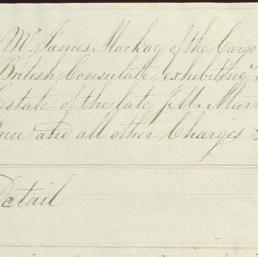 Mr. James Mackay of the Cargo
British Consulate, exhibiting
Estate of the late J. M. Mar
and all other Charges
Detail